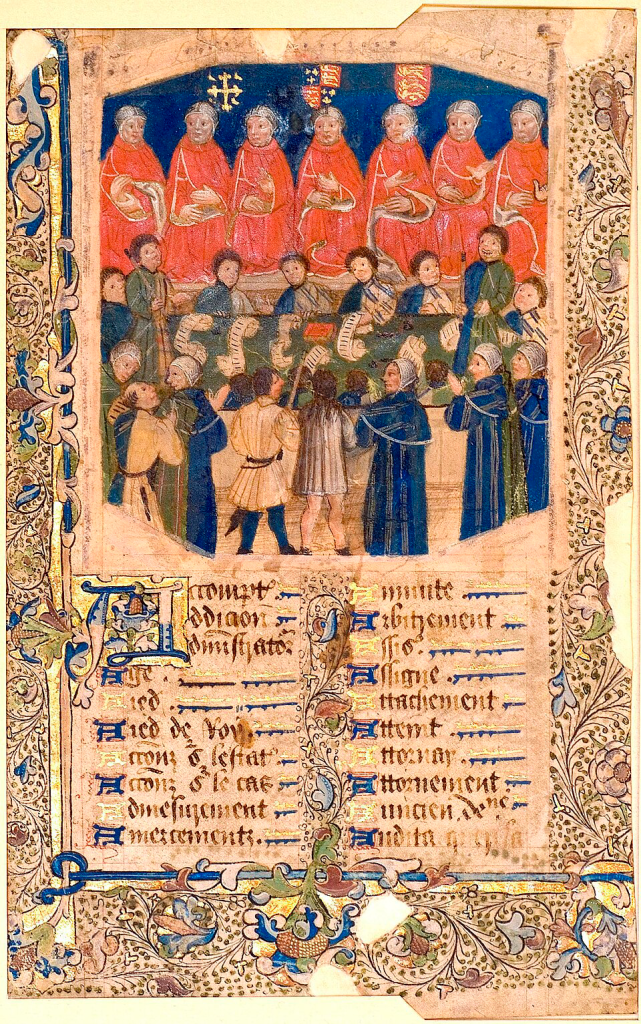 Accompt.
Addicion
Administrator
Age.
Aied.
Aied de Roy
Acconz s lestat
Acconz s le cas
Admesurement
Amercementz.
Annuite
Arbitrement
Assis.
Assigne
Attachement
Atteint.
Attornay.
Attornement
Auncien deñe
Audita querela